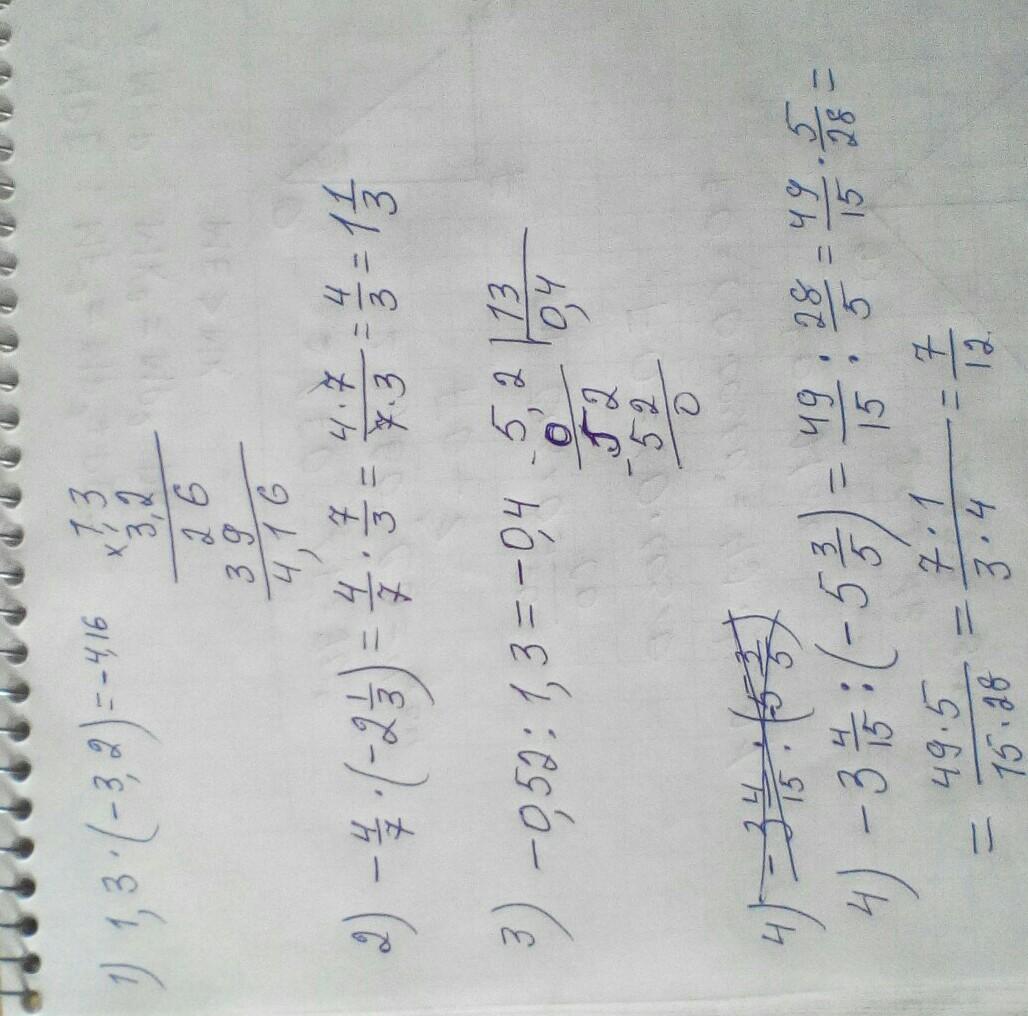 1) 1,3 · (-3,2) = -4,16
× 1,3
3,2
2 6
3 9
4,1 6
2) - 4/7 · (-2 1/3) = 4/7 · 7/3 = 4·7/7·3 = 4/3 = 1 1/3
3) -0,52 : 1,3 = -0,4
- 5,2 | 13
0 | 0,4
5 2
- 5 2
0
4) -3 4/15 · (5 3/5)
4) -3 4/15 : (-5 3/5) = 49/15 : 28/5 = 49/15 · 5/28 =
= 49·5/15·28 = 7·1/3·4 = 7/12